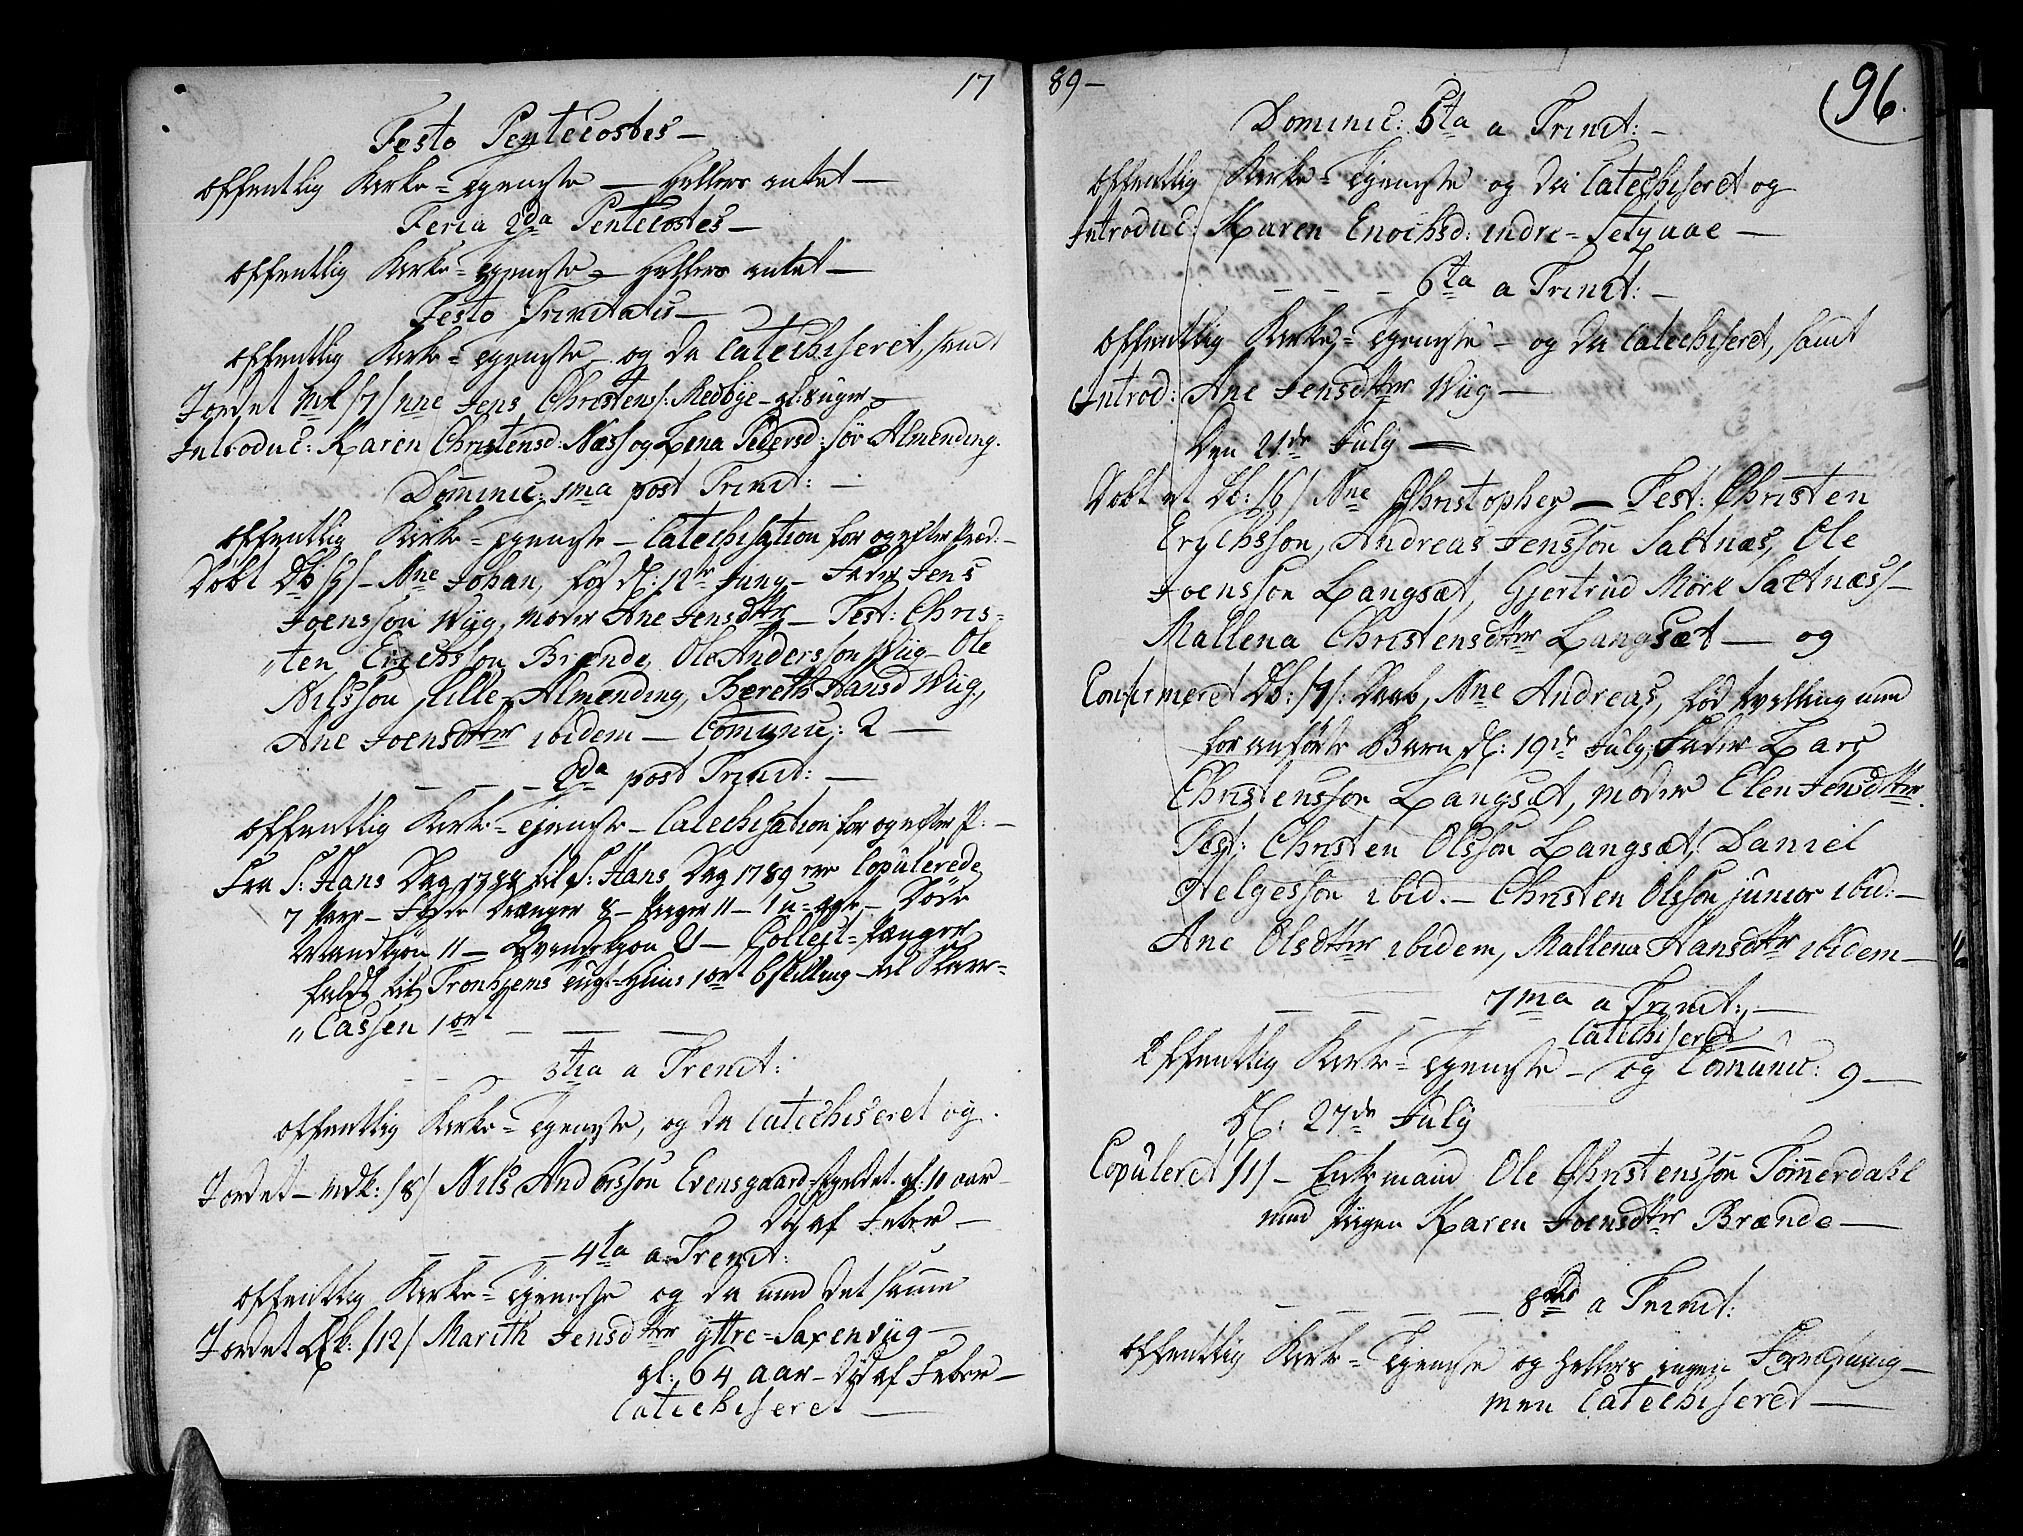 17
Festo Pentecostes —
offentlig Kirke-Tjeneste — hellers intet —
Feria 2da Pentecostes —
offentlig Kirke-Tjeneste — hellers intet —
Festo Trinitatis —
offentlig Kirke-Tjeneste — og da Catechiseret, samt
Jordet Mk /7/ Nne Jens Christens: Medbye — gl: 8 uger —
Introduc: Karen Christensd: Næss og Lena Pedersd: sør Almending.
Dominic: 1ma post Trinit: —
offentlig Kirke-Tjeneste — Catechisation for og efter Præd: —
Døbt Db /5/ — Nne Johan, fød d: 12te Juny — Fader Jens
Joensson Wiig, Moder Ane Jensdtter — Test: Chris-
"ten Erichsson Brænde, Ole Andersson Wiig — Ole
Nilsson Lille-Almending, Bereth Hansd Wiig,
Ane Joensdtter ibidem — Comunic: 2 —
— — — 2da post Trinit: —
offentlig Kirke-Tjeneste — Catechisation for og efter P: —
Fra S: Hans Dag 1788 til S: Hans Dag 1789 ere Copulerede
7 Par — Fødte Drænger 8 — Piger 11 — 1 u-ægte — Døde
Mandkjøn 11 — Qvindekjøn 21 — Collect-Pænger
faldt til Tronhjems Tugt-Huus 1 ort 6 skilling — til Skole-
"Cassen 1 ort — — —
— — — 3tia a Trinit:
offentlig Kirke-Tjeneste, og da Catechiseret og
Jordet — Mdk: /8/ Nils Andersson Evensgaard-Fieldet. gl: 11 aar —
Død af Feber —
— — — 4ta a Trinit:
offentlig Kirke-Tjeneste og da med det samme
Jordet Qk: /12/ Marith Jensdtter yttre-Saxenviig —
gl: 64 aar — Død af Feber —
Catechiseret —
89 —
96.
Dominic: 5ta a Trinit: —
offentlig Kirke-Tjeneste og da Catechiseret og
Introduc: Karen Enochsd: indre-Setzaae —
— — — 6ta a Trinit: —
offentlig Kirke-Tjeneste — og da Catechiseret, samt
Introd: Ane Jensdtter Wiig —
Den 21de July —
Døbt et Db: /6/ Nne Christopher — Test: Christen
Erichsson, Andreas Jensson Saltnæs, Ole
Joensson Langsæt, Gjertrud Mørk Saltnæss —
Mallena Christensdtter Langsæt — og
Confirmeret Db: /7/: Daab, Nne Andreas, fød tvelling med
for anførte Barn d: 19de July, Fader Lars
Christensson Langsæt, Moder Elen Jensdtter.
Test: Christen Olsson Langsæt, Daniel
Helgesson ibid. — Christen Olsson junior ibid: —
Ane Olsdtter ibidem, Mallena Hansdtter ibidem —
— — — 7ma a Trinit: —
Catechiseret
offentlig Kirke-Tjeneste — og Comunic: 9 —
d: 27de July
Copuleret /1/ — Enkemand Ole Christensson Tømmerdahl
med Pigen Karen Joensdtter Brænde —
— — — 8va a Trinit:
offentlig Kirke-Tjeneste og hellers ingen Forretning —
men Catechiseret —